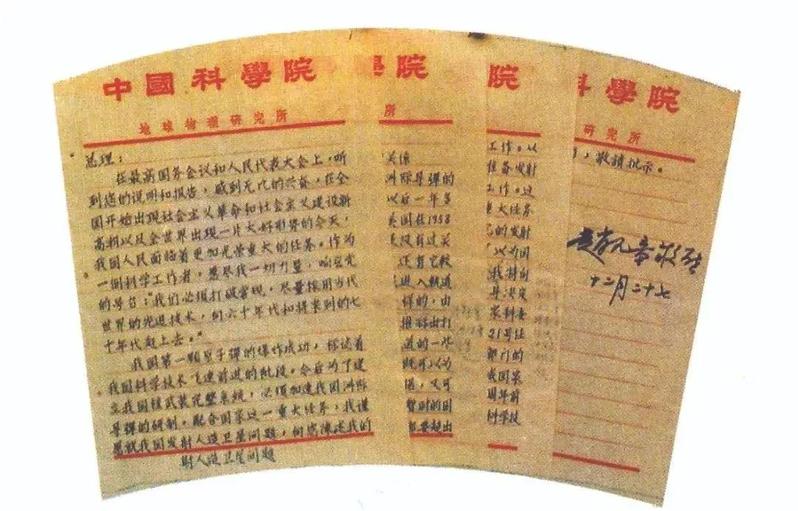 中國科學院
地球物理研究所
总理：
在最高国务会议和人民代表大会上，听
到您的说明和报告，感到无比的兴奋，在全
国开始出现社会主义革命和社会主义建设新
高潮以及全世界出现一片大好形势的今天，
我国人民面临着更加光荣重大的任务。作为
一个科学工作者，愿尽我一切力量，响应党
的号召："我们必须打破常规，尽量采用当代
世界的先进技术，向六十年代和将来到的七
十年代赶上去。"
我国第一颗原子弹的爆炸成功，标志着
我国科学技术飞速前进的阶段。今后为了建
立我国核武装完整系统，必须加速我国洲际
导弹的研制。配合国家这一重大任务，我谨
愿就我国发射人造卫星问题，向您陈述我的
射人造卫星问题
院
所
洲际导弹的
以后一年多
美国在1958
没有过关
正有它较
进入轨道
样的，由
推移出打
道的一些
既可以为
道，又可
院
工作。以
准备发射
工作。这
重大任务
的发射
以为国
我特向
导决定
21号任
部门的
我国第
周年前
科学技
科學院
研究所
，敬请批示。
赵九章敬上
十二月二十七